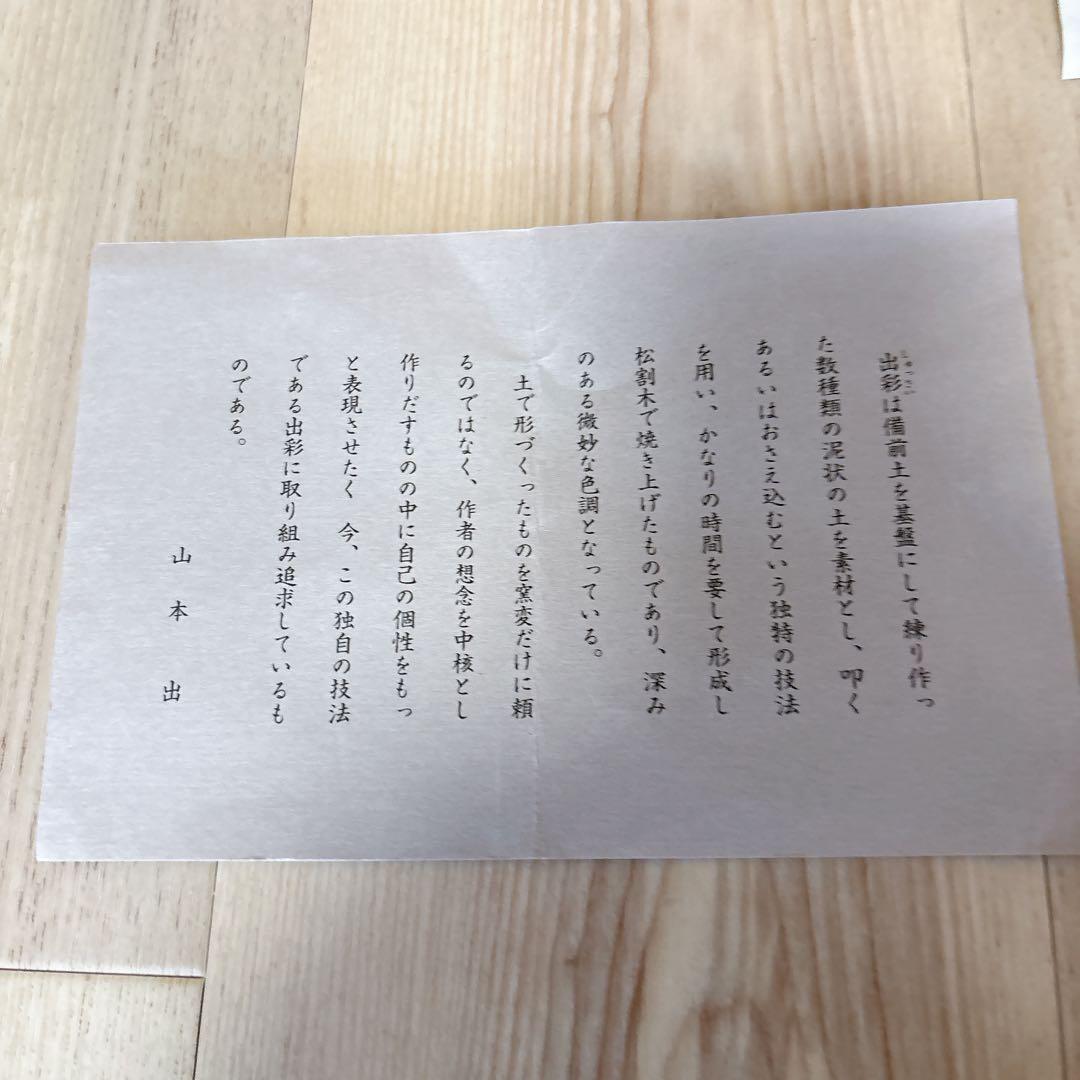 出彩は備前土を基盤にして練り作っ
た数種類の泥状の土を素材とし、叩く
あるいはおさえ込むという独特の技法
を用い、かなりの時間を要して形成し
松割木で焼き上げたものであり、深み
のある微妙な色調となっている。
土で形づくったものを窯変だけに頼
るのではなく、作者の想念を中核とし
作りだすものの中に自己の個性をもっ
と表現させたく　今、この独自の技法
である出彩に取り組み追求しているも
のである。
山本出